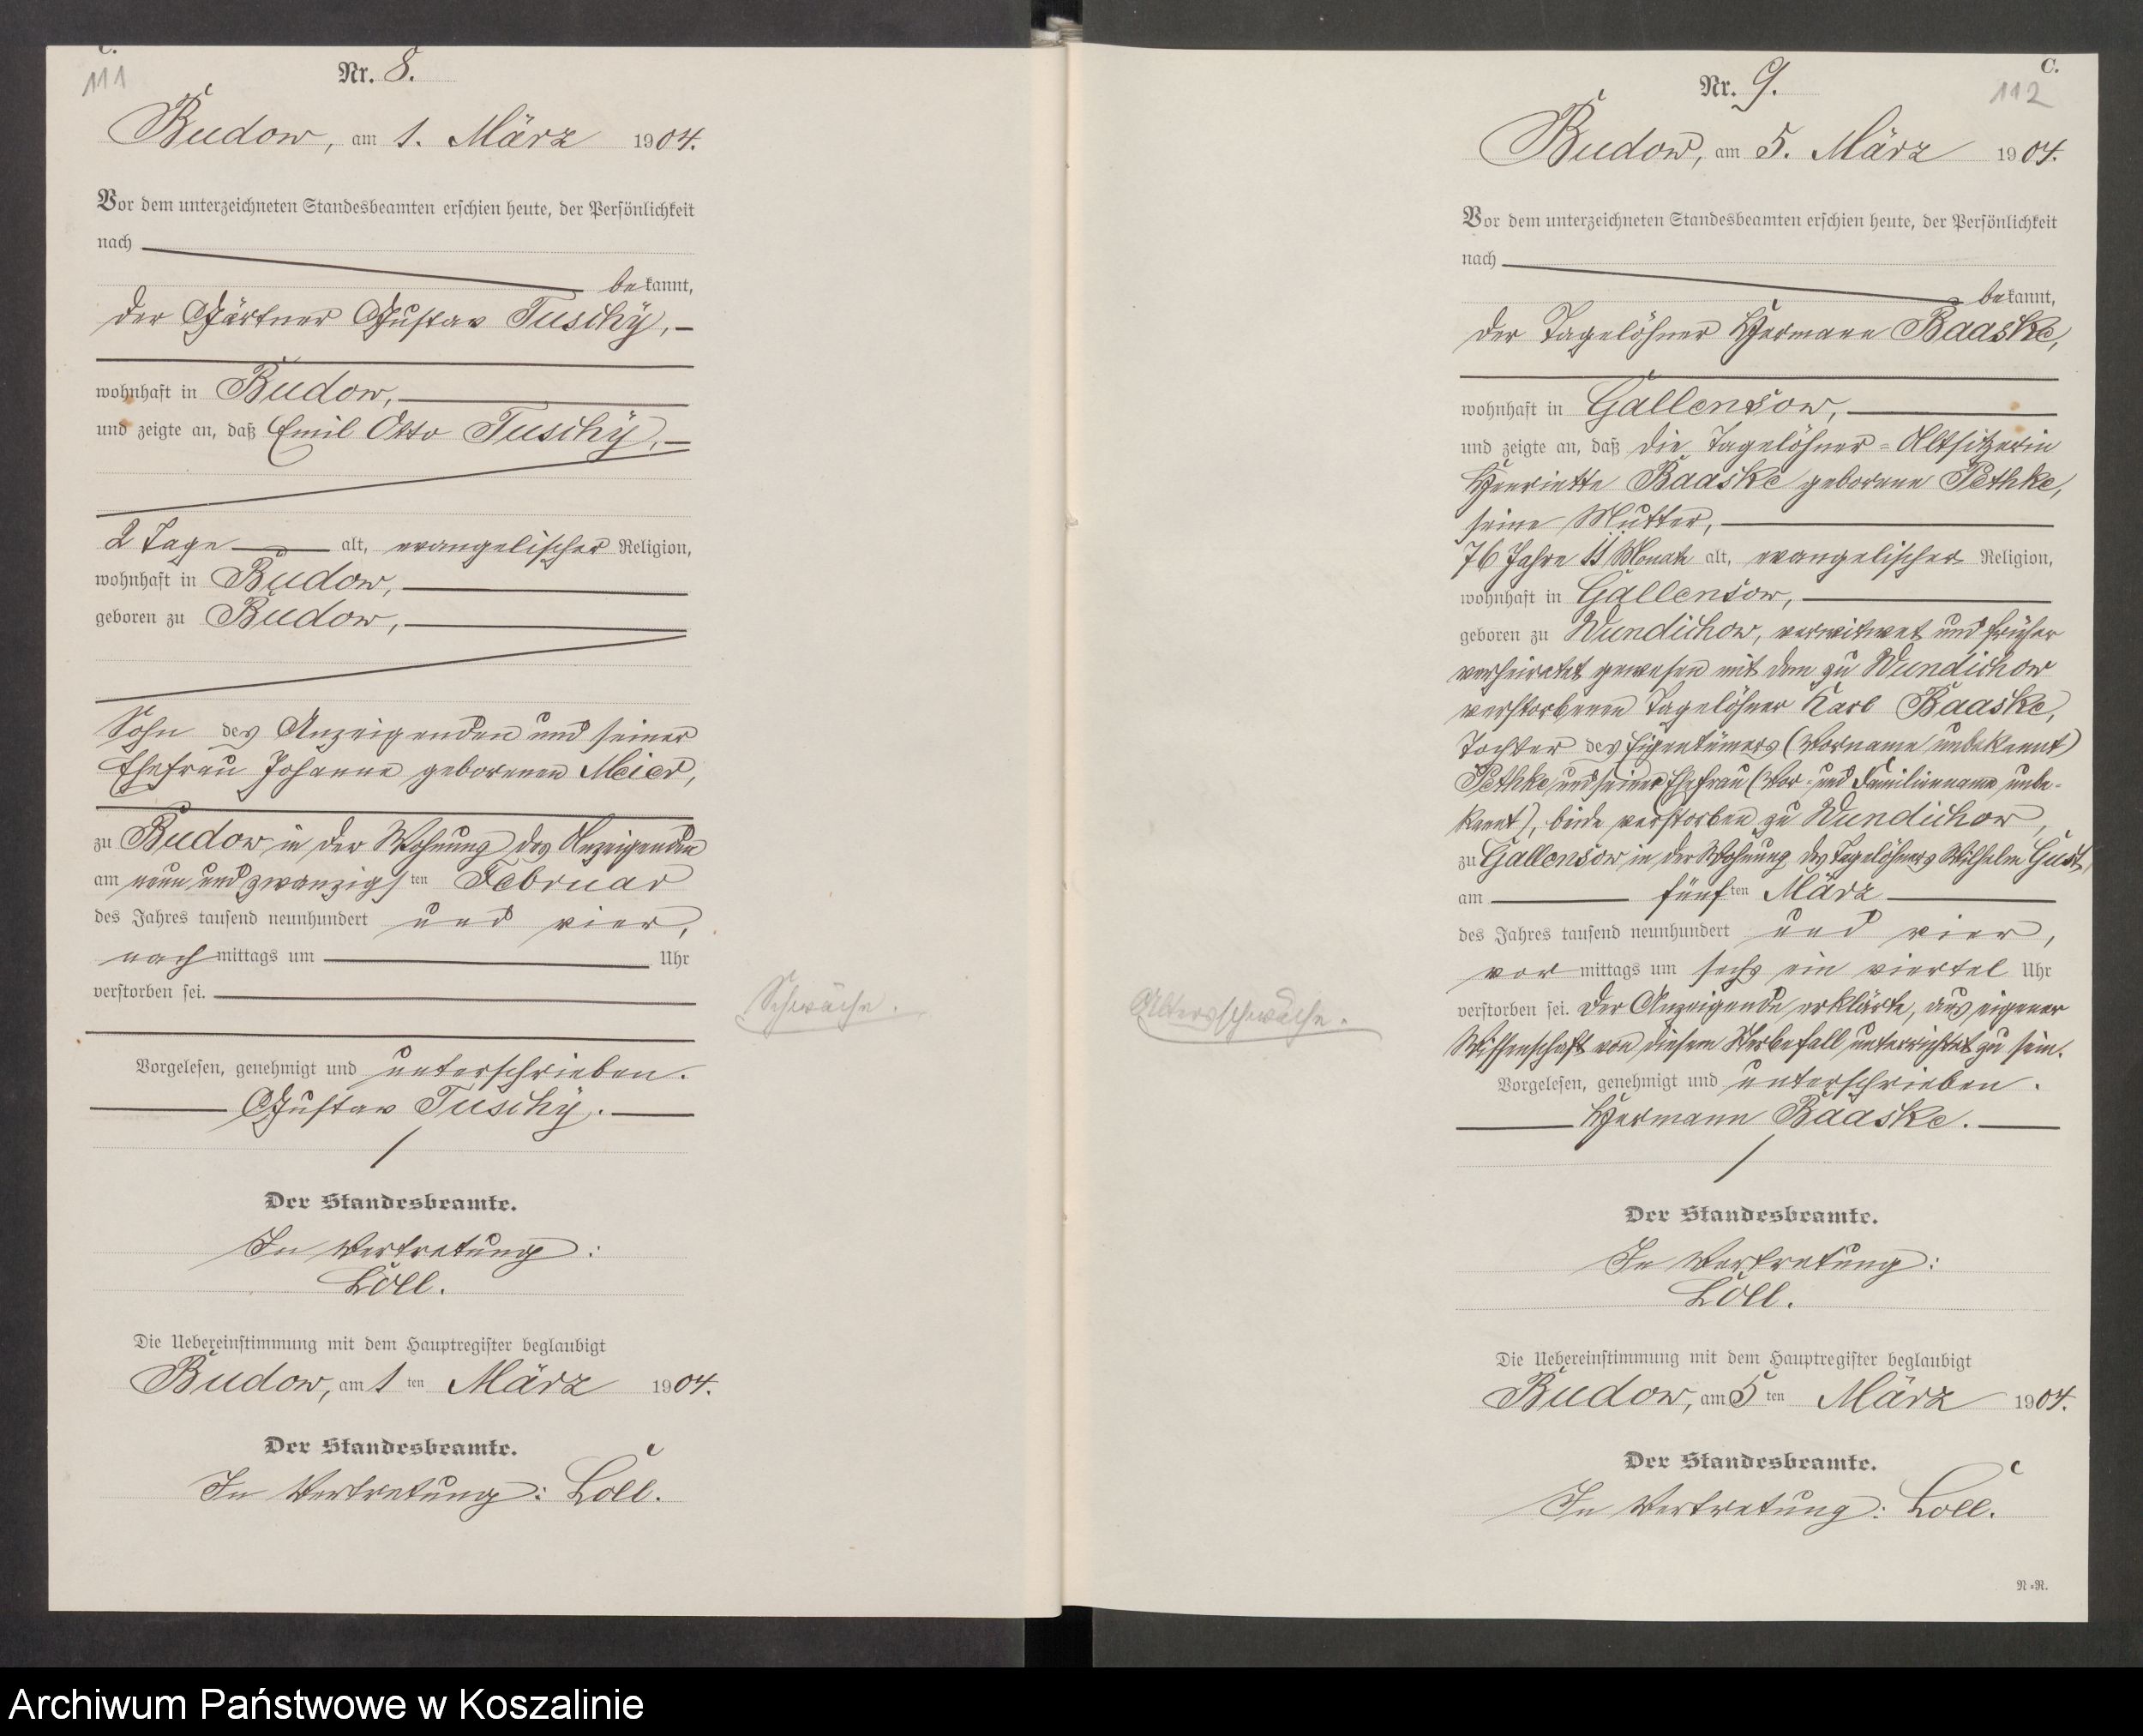 C.
111
Nr. 8.
Budow, am 1. März 1904.
Vor dem unterzeichneten Standesbeamten erschien heute, der Persönlichkeit
nach
bekannt,
der Gärtner Gustav Tuschy,
wohnhaft in Budow,
und zeigte an, daß Emil Otto Tuschy,
2 Tage alt, evangelischer Religion,
wohnhaft in Budow,
geboren zu Budow,
Sohn des Anzeigenden und seiner
Ehefrau Johanne geborenen Meier,
zu Budow in der Wohnung des Anzeigenden
am neun und zwanzigsten Februar
des Jahres tausend neunhundert und vier,
nachmittags um Uhr
verstorben sei.
Schwäche.
Vorgelesen, genehmigt und unterschrieben.
Gustav Tuschy.
Der Standesbeamte.
In Vertretung:
Loll.
Die Uebereinstimmung mit dem Hauptregister beglaubigt
Budow, am 1ten März 1904.
Der Standesbeamte.
In Vertretung: Loll.
C.
112
Nr. 9.
Budow, am 5. März 1904.
Vor dem unterzeichneten Standesbeamten erschien heute, der Persönlichkeit
nach
bekannt,
der Tagelöhner Hermann Baaske,
wohnhaft in Gallensow,
und zeigte an, daß die Tagelöhner=Altsitzerin
Henriette Baaske geborene Pethke,
seine Mutter,
76 Jahre 11 Monate alt, evangelischer Religion,
wohnhaft in Gallensow,
geboren zu Wundichow, verwitwet und früher
verheiratet gewesen mit dem zu Wundichow
verstorbenen Tagelöhner Karl Baaske,
Tochter des Eigentümers (Vorname unbekannt)
Pethke und seiner Ehefrau (Vor- und Familienname unbe-
kannt), beide verstorben zu Wundichow,
zu Gallensow in der Wohnung des Tagelöhners Wilhelm Gust,
am fünften März
des Jahres tausend neunhundert und vier,
vormittags um sechs ein viertel Uhr
verstorben sei. Der Anzeigende erklärte, aus eigener
Wissenschaft von diesem Sterbefall unterrichtet zu sein.
Altersschwäche.
Vorgelesen, genehmigt und unterschrieben.
Hermann Baaske.
Der Standesbeamte.
In Vertretung:
Loll.
Die Uebereinstimmung mit dem Hauptregister beglaubigt
Budow, am 5ten März 1904.
Der Standesbeamte.
In Vertretung: Loll.
N=R.
Archiwum Państwowe w Koszalinie